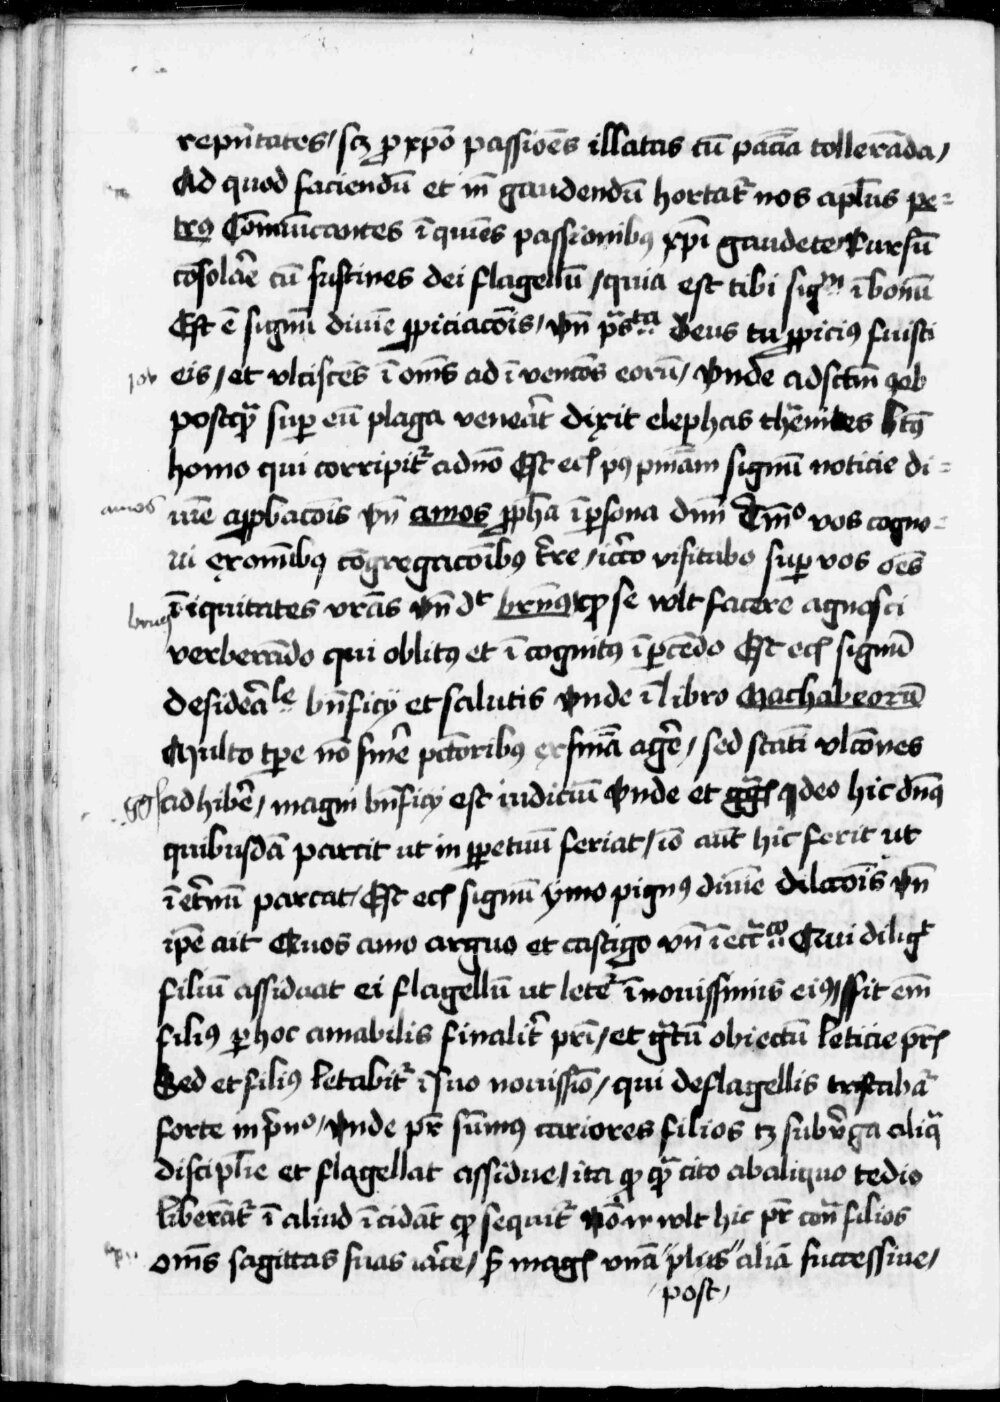 rep̄ntates / scʒ ꝓ xpō passiōes illatas cū paciā tollerāda /
Ad quod faciendū et in̄ gaudendū hortat᷑ nos apl̄us pe=
trꝯ Cōmūicantes ī quiēs passionibꝯ xp̄i gaudete / Rursū
cōsolāre cū sustines dei flagellū / quia est tibi sigᵐ ī bonū
Est ē signū diuīe ꝓpiciacōis / vn̄ p̄sᵗᵃ Deus tu ꝓpiciꝯ fuisti
job
eis / et vlciscēs ī om̄s ad īvencōes eorū / Vnde ad sctm̄ Iob
postqᷓ suꝑ eū plaga veneāt dixit elephas themāites btꝯ
homo qui corripit᷑ a dn̄o Est ecī pꝯ pmāam signū noticie di=
amos
uīe apꝓbacōis vn̄ amos ꝓpħa ī ꝑsona dn̄i Tm̄º vos cogno=
ui ex omībꝯ cōgregacōibꝯ t̄re / icc̄o visitabo suꝑ vos oēs
ī iquitates vrās vn̄ dᵗ brn̄ꝯ ꝙ se wlt facere agnosci
verberādo qui oblitꝯ et ī cognitꝯ ī ꝑcēdo Est ecī signū
desideāˡᵉ bn̄ficij et salutis Vnde ī libro Machabeorū
Multo tꝑe nō sinēe pctōribꝯ ex sn̄ia agēe / sed statī vlcōnes
gg
adhibēe / magni bn̄ficij est iudiciū Vnde et ggꝰ Ideo hic dn̄ꝯ
quibusdā parcit ut in ꝑpetuū feriat / iō aūt hic ferit ut
ī et̄nū parcat / Est ecī signū ymo pignꝯ diuīe dilcōis vn̄
ip̄e ait Quos amo arguo et castigo vn̄ ī eccᶜᵒ Qui diligᵗ
filiū assiduat ei flagellū ut letet᷑ ī nouissimis eiꝯ / sit em̄
filiꝯ ꝑ hoc amabilis finalit᷑ pr̄i / et gᵃtū obiectū leticie pr̄s
Sed et filiꝯ letabit᷑ ī suo nouissīo / qui de flagellis tristabat᷑
forte in pⁿº / Vnde pr̄ sūmꝯ cariores filios tʒ sub v̄ga aliqᷓ
disciplīe et flagellat assidue / ita ꝙ qᷓ cito ab aliquo tedio
liberāt᷑ ī aliud īcidāt ꝙ sequit᷑ Nō wlt hic pr̄ con̄ filios
om̄s sagittas suas iacēe / s̄ magꝭ vnā "plus" aliā successiue /
/ post /